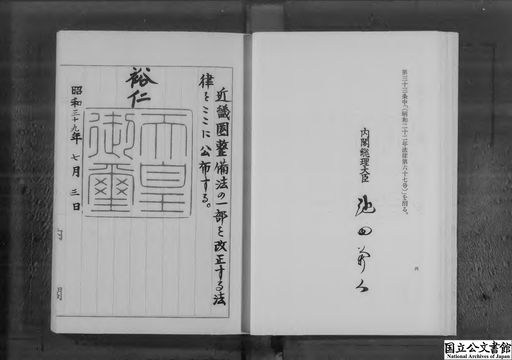 第三十三条中「(昭和二十二年法律第六十七号)」を削る。
内閣総理大臣
池田勇人
四
近畿圏整備法の一部を改正する法
律をここに公布する。
裕仁
天皇
御璽
昭和三十九年七月三日
国立公文書館
National Archives of Japan